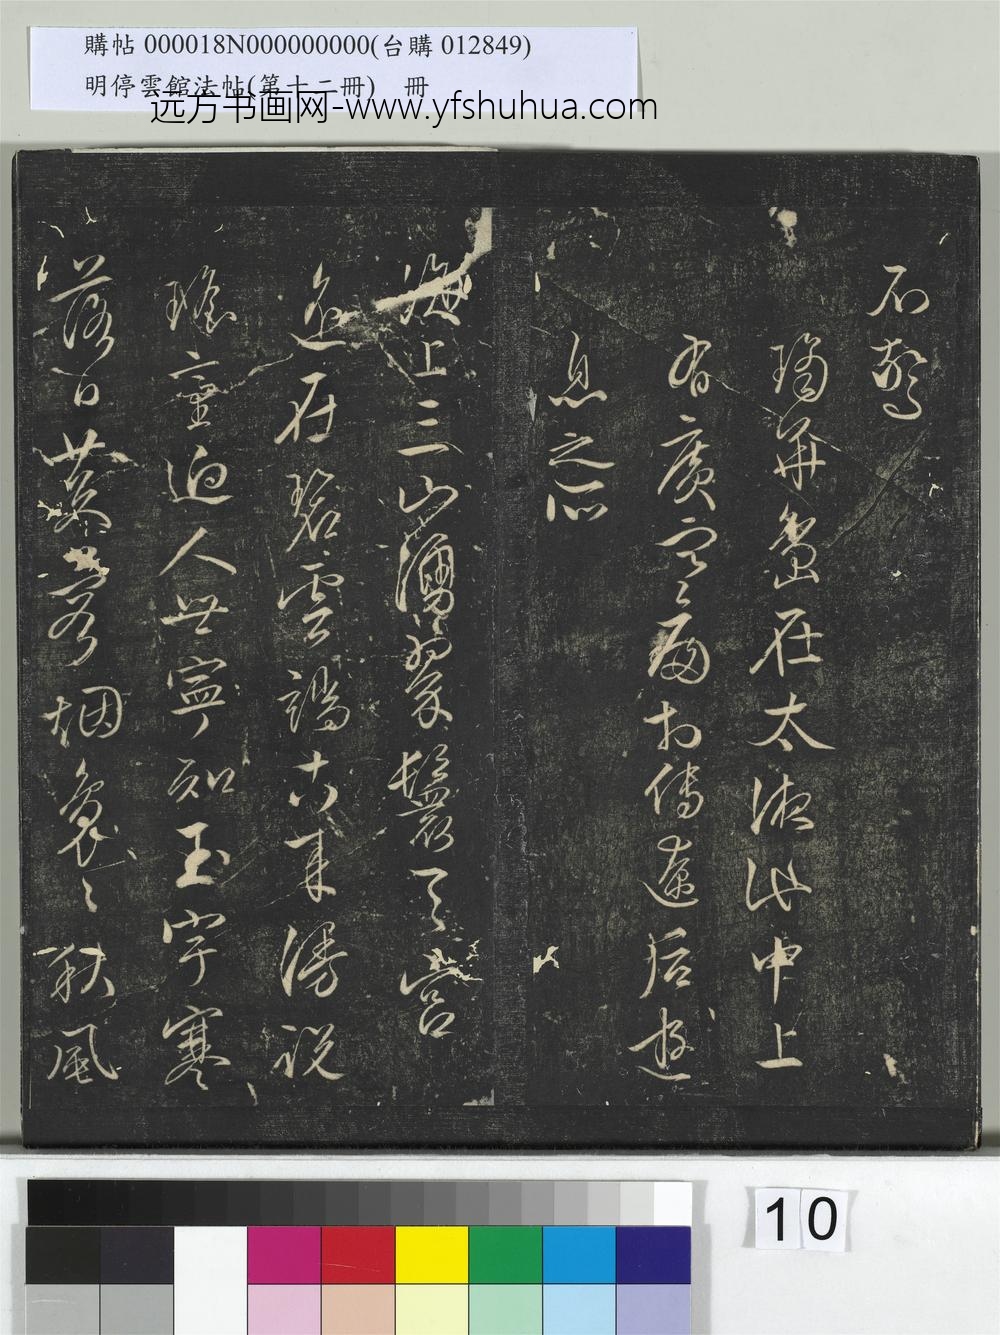 購帖 000018N000000000(台購 012849)
明停雲館法帖(第十二冊) 冊
远方书画网-www.yfshuhua.com
瓊華島在太液池中上
有廣寒殿相傳遼后遊
息之所
海上三山湧翠鬟天宮
遙在碧雲端古來漫說
瑤臺迥人世寧知玉宇寒
落日芙蓉烟裊々秋風
10